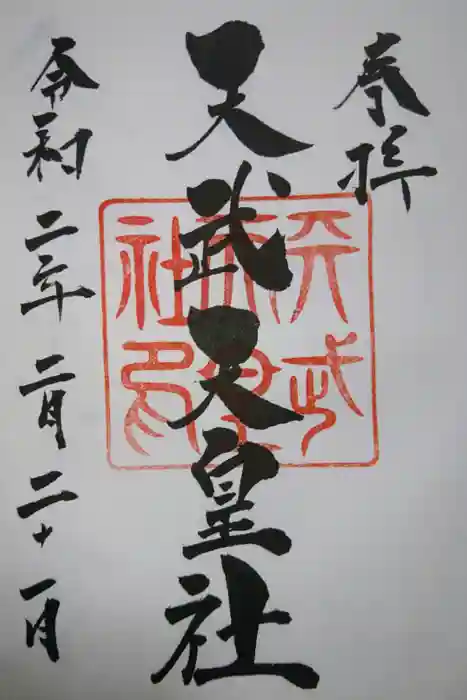 奉拝
天武天皇社
令和二年二月二十一日
天武
天皇
社印